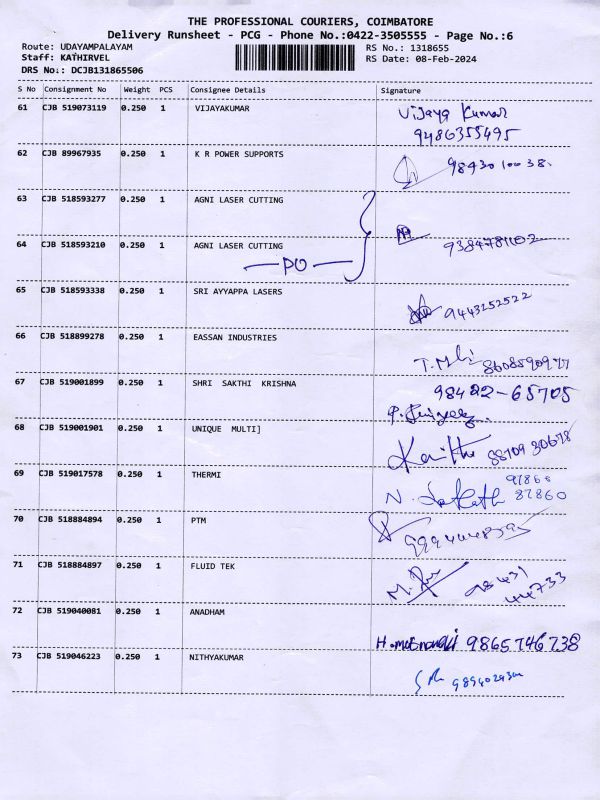 THE PROFESSIONAL COURIERS, COIMBATORE
Delivery Runsheet - PCG - Phone No.:0422-3505555 - Page No.:6
Route: UDAYAMPALAYAM RS No.: 1318655
Staff: KATHIRVEL RS Date: 08-Feb-2024
DRS No.: DCJB131865506
S No Consignment No Weight PCS Consignee Details Signature
61 CJB 519073119 0.250 1 VIJAYAKUMAR Vijaya Kumar
9486355495
62 CJB 89967935 0.250 1 K R POWER SUPPORTS 9843010038.
63 CJB 518593277 0.250 1 AGNI LASER CUTTING
64 CJB 518593210 0.250 1 AGNI LASER CUTTING 9384781102
PO
65 CJB 518593338 0.250 1 SRI AYYAPPA LASERS 9443252522
66 CJB 518899278 0.250 1 EASSAN INDUSTRIES
67 CJB 519001899 0.250 1 SHRI SAKTHI KRISHNA 98422-65705
68 CJB 519001901 0.250 1 UNIQUE MULTI] 8870930678
69 CJB 519017578 0.250 1 THERMI 97868
87860
70 CJB 518884894 0.250 1 PTM
71 CJB 518884897 0.250 1 FLUID TEK 98431
44733
72 CJB 519040081 0.250 1 ANADHAM 9865746738
73 CJB 519046223 0.250 1 NITHYAKUMAR